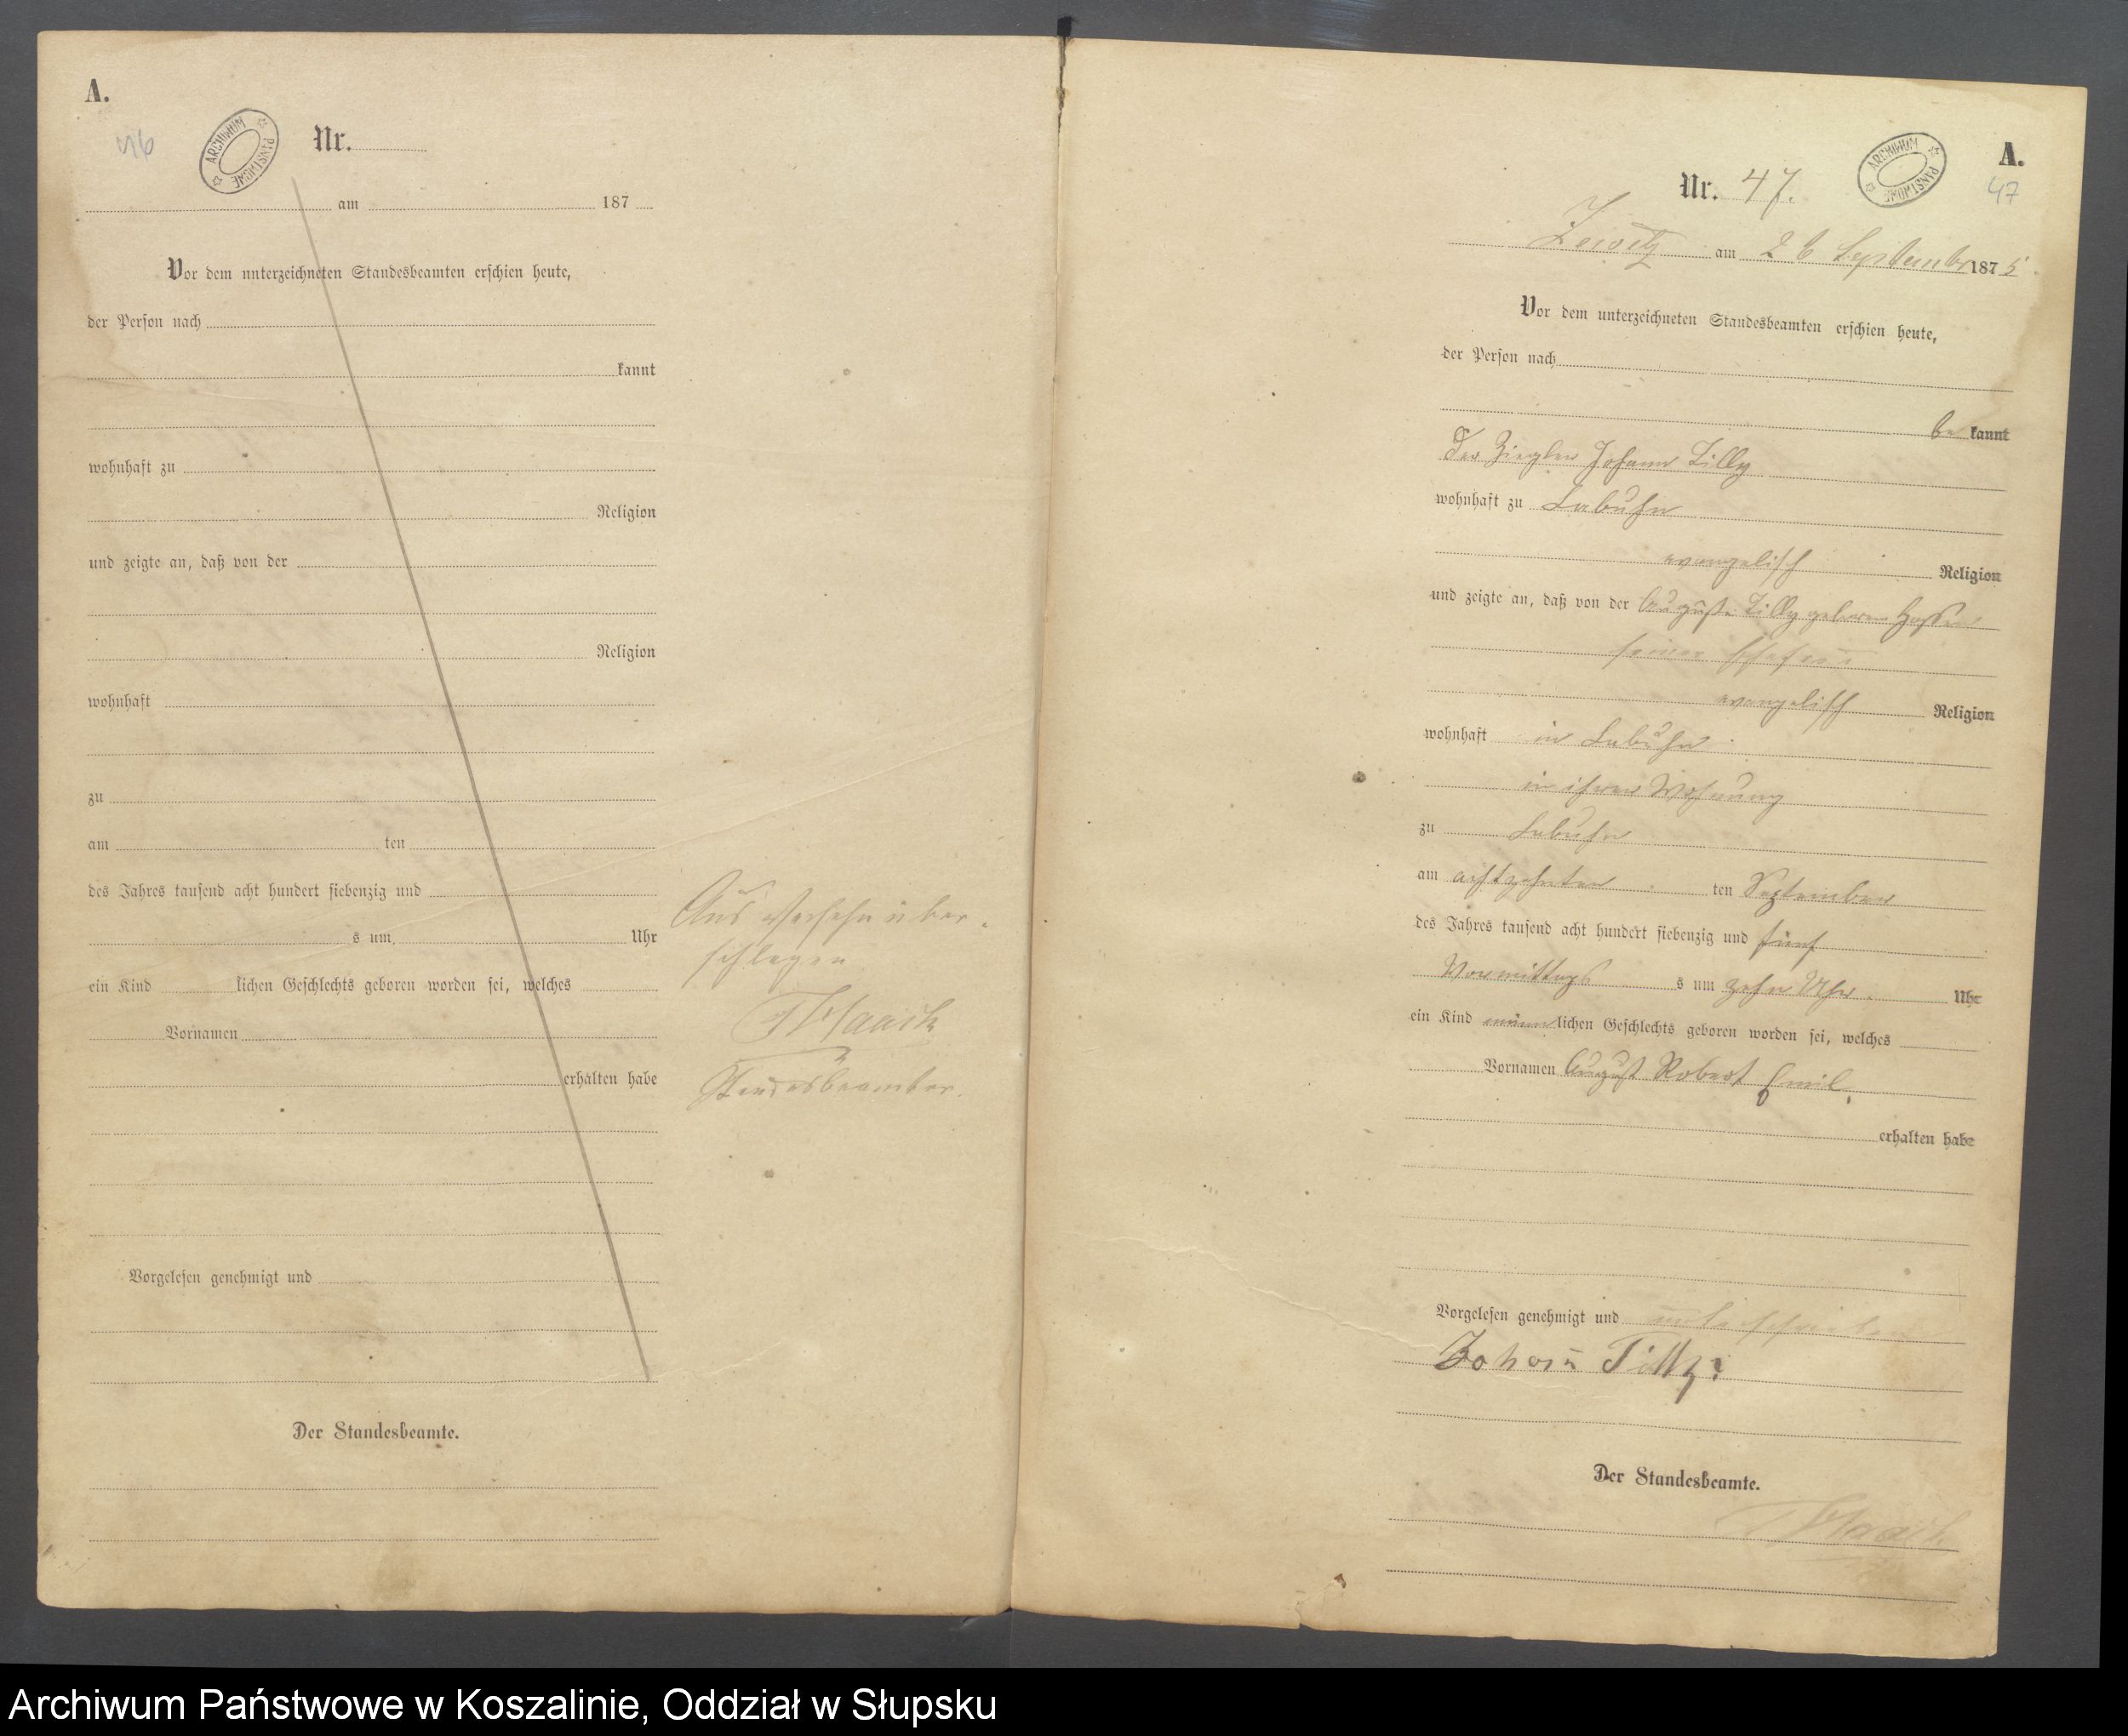 A.
46
ARCHIWUM PAŃSTWOWE
Nr.
am 187
Vor dem unterzeichneten Standesbeamten erschien heute,
der Person nach
kannt
wohnhaft zu
Religion
und zeigte an, daß von der
Religion
wohnhaft
zu
am ten
des Jahres tausend acht hundert siebenzig und
s um Uhr
ein Kind lichen Geschlechts geboren worden sei, welches
Vornamen
erhalten habe
Vorgelesen genehmigt und
Der Standesbeamte.
Aus Versehn über-
schlagen
Haack
Standesbeamter.
A.
47
ARCHIWUM PAŃSTWOWE
Nr. 47.
Zewitz am 26 September 1875
Vor dem unterzeichneten Standesbeamten erschien heute,
der Person nach
be kannt
Der Ziegler Johann Tilly
wohnhaft zu Labuhn
evangelisch Religion
und zeigte an, daß von der Auguste Tilly geboren
seiner Ehefrau
evangelisch Religion
wohnhaft in Labuhn
in ihrer Wohnung
zu Labuhn
am achtzehnten ten September
des Jahres tausend acht hundert siebenzig und fünf
Vormittags s um zehn Uhr. Uhr
ein Kind männlichen Geschlechts geboren worden sei, welches
Vornamen August Robert Emil,
erhalten habe
Vorgelesen genehmigt und unterschrieben
Johann Tilly
Der Standesbeamte.
Haack.
Archiwum Państwowe w Koszalinie, Oddział w Słupsku